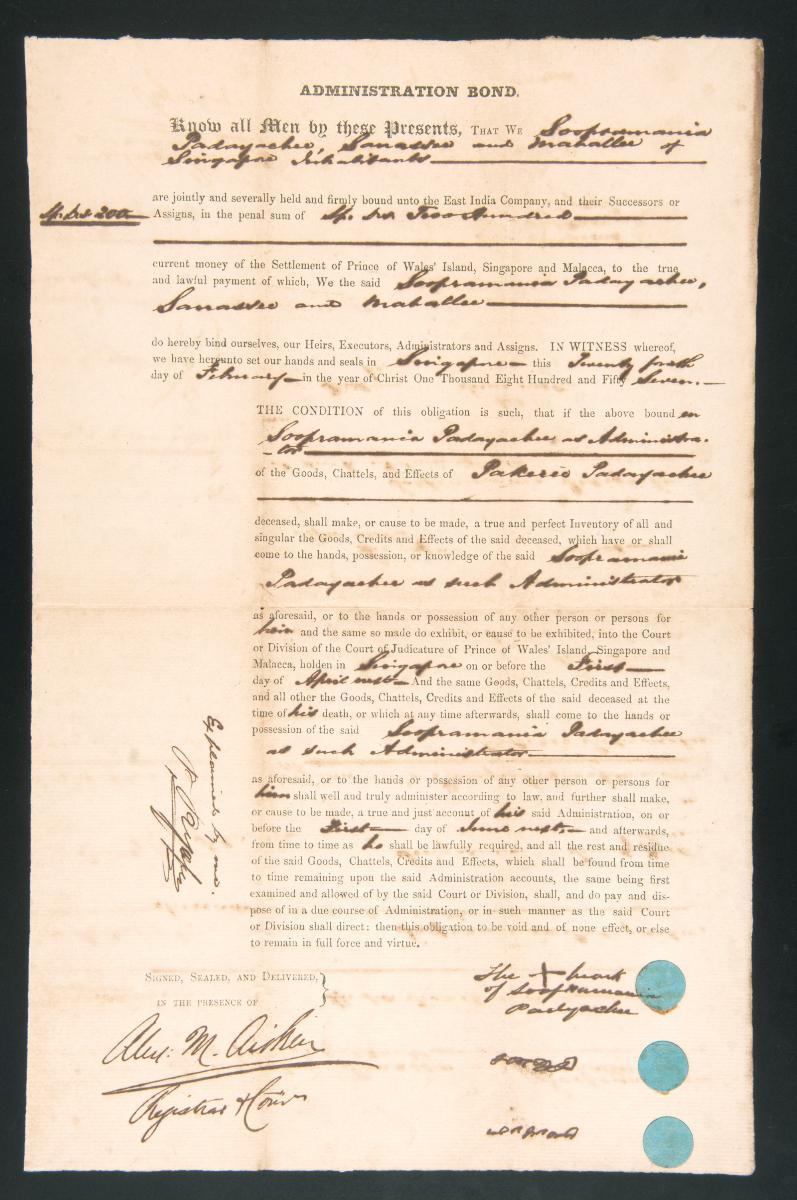 ADMINISTRATION BOND.
Know all Men by these Presents, THAT WE Soopramania
Padayachee, Sanassee and Mahallee of
Singapore Inhabitants
are jointly and severally held and firmly bound unto the East India Company, and their Successors or
Sp. Drs 200 Assigns, in the penal sum of Sp. Drs Two Hundred
current money of the Settlement of Prince of Wales' Island, Singapore and Malacca, to the true
and lawful payment of which, We the said Soopramania Padayachee,
Sanassee and Mahallee
do hereby bind ourselves, our Heirs, Executors, Administrators and Assigns. IN WITNESS whereof,
we have hereunto set our hands and seals in Singapore this Twenty fourth
day of February in the year of Christ One Thousand Eight Hundred and Fifty Seven.
THE CONDITION of this obligation is such, that if the above bound en
Soopramania Padayachee as Administra-
-tor
of the Goods, Chattels, and Effects of Pakerie Padayachee
deceased, shall make, or cause to be made, a true and perfect Inventory of all and
singular the Goods, Credits and Effects of the said deceased, which have or shall
come to the hands, possession, or knowledge of the said Soopramania
Padayachee as such Administrator
as aforesaid, or to the hands or possession of any other person or persons for
him and the same so made do exhibit, or cause to be exhibited, into the Court
or Division of the Court of Judicature of Prince of Wales' Island, Singapore and
Malacca, holden in Singapore on or before the First
day of April next And the same Goods, Chattels, Credits and Effects,
and all other the Goods, Chattels, Credits and Effects of the said deceased at the
time of his death, or which at any time afterwards, shall come to the hands or
possession of the said Soopramania Padayachee
as such Administrator
as aforesaid, or to the hands or possession of any other person or persons for
him shall well and truly administer according to law, and further shall make,
or cause to be made, a true and just account of his said Administration, on or
before the First day of June next and afterwards,
from time to time as he shall be lawfully required, and all the rest and residue
of the said Goods, Chattels, Credits and Effects, which shall be found from time
to time remaining upon the said Administration accounts, the same being first
examined and allowed of by the said Court or Division, shall, and do pay and dis-
pose of in a due course of Administration, or in such manner as the said Court
or Division shall direct: then this obligation to be void and of none effect, or else
to remain in full force and virtue.
Explained by me.
SIGNED, SEALED, AND DELIVERED,
IN THE PRESENCE OF
Alex. M. Aitken
Registrar
The X mark
of Soopramania
Padyachee